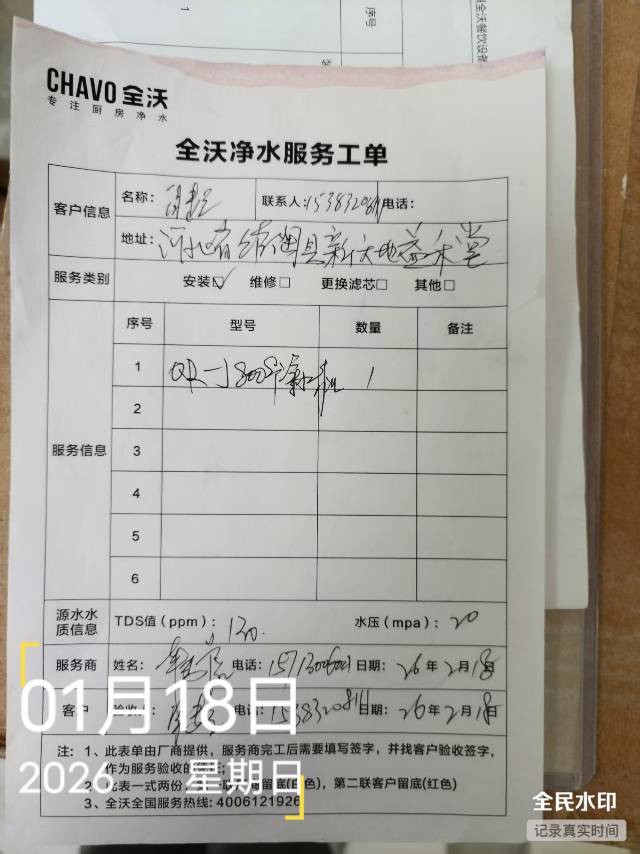 1
序号
全沃餐饮设备
CHAVO 全沃
专注厨房净水
全沃净水服务工单
客户信息
名称:
联系人:
电话:
地址: 河北省 县新天地益禾堂
服务类别
安装☑ 维修□ 更换滤芯□ 其他□
服务信息
序号 型号 数量 备注
1 QR-J800 1
2
3
4
5
6
源水水质信息
TDS值（ppm）: 130. 水压（mpa）: 20
服务商 姓名: 电话: 日期: 26年2月18
客户 验收 电话: 日期: 26年2月18
注: 1、此表单由厂商提供，服务商完工后需要填写签字，并找客户验收签字，
作为服务验收的
2、此表一式两份，第一联 留底(白色)，第二联客户留底(红色)
3、全沃全国服务热线: 4006121926
01月18日
2026 星期日
全民水印
记录真实时间